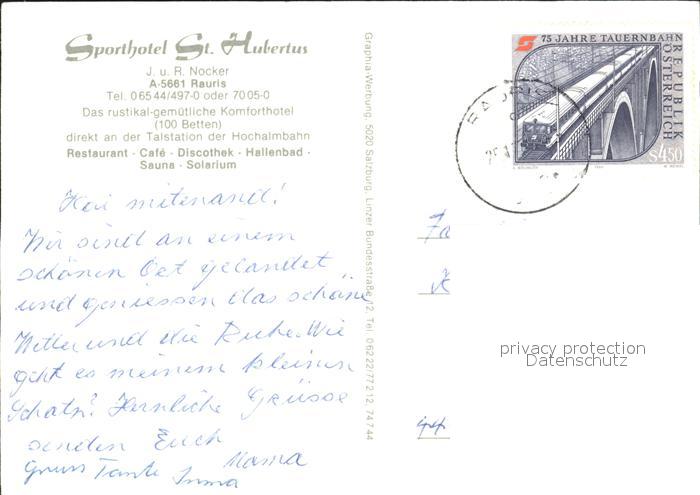 Sporthotel St. Hubertus
J. u. R. Nocker
A-5661 Rauris
Tel. 0 65 44/497-0 oder 70 05-0
Das rustikal-gemütliche Komforthotel
(100 Betten)
direkt an der Talstation der Hochalmbahn
Restaurant · Café · Discothek · Hallenbad ·
Sauna · Solarium
Hoi mitenand!
Wir sind an einem
schönen Ort gelandet
und geniessen das schöne
Wetter und die Ruhe. Wie
geht es meinem kleinen
Schatz? Herzliche Grüsse
senden Euch
Mama
Gruss Tante Irma
Graphia-Werbung, 5020 Salzburg, Linzer Bundesstraße 12, Tel. 0 62 22/77 2 12, 74 7 44
75 JAHRE TAUERNBAHN
REPUBLIK
ÖSTERREICH
S4.50
Fa
privacy protection
Datenschutz